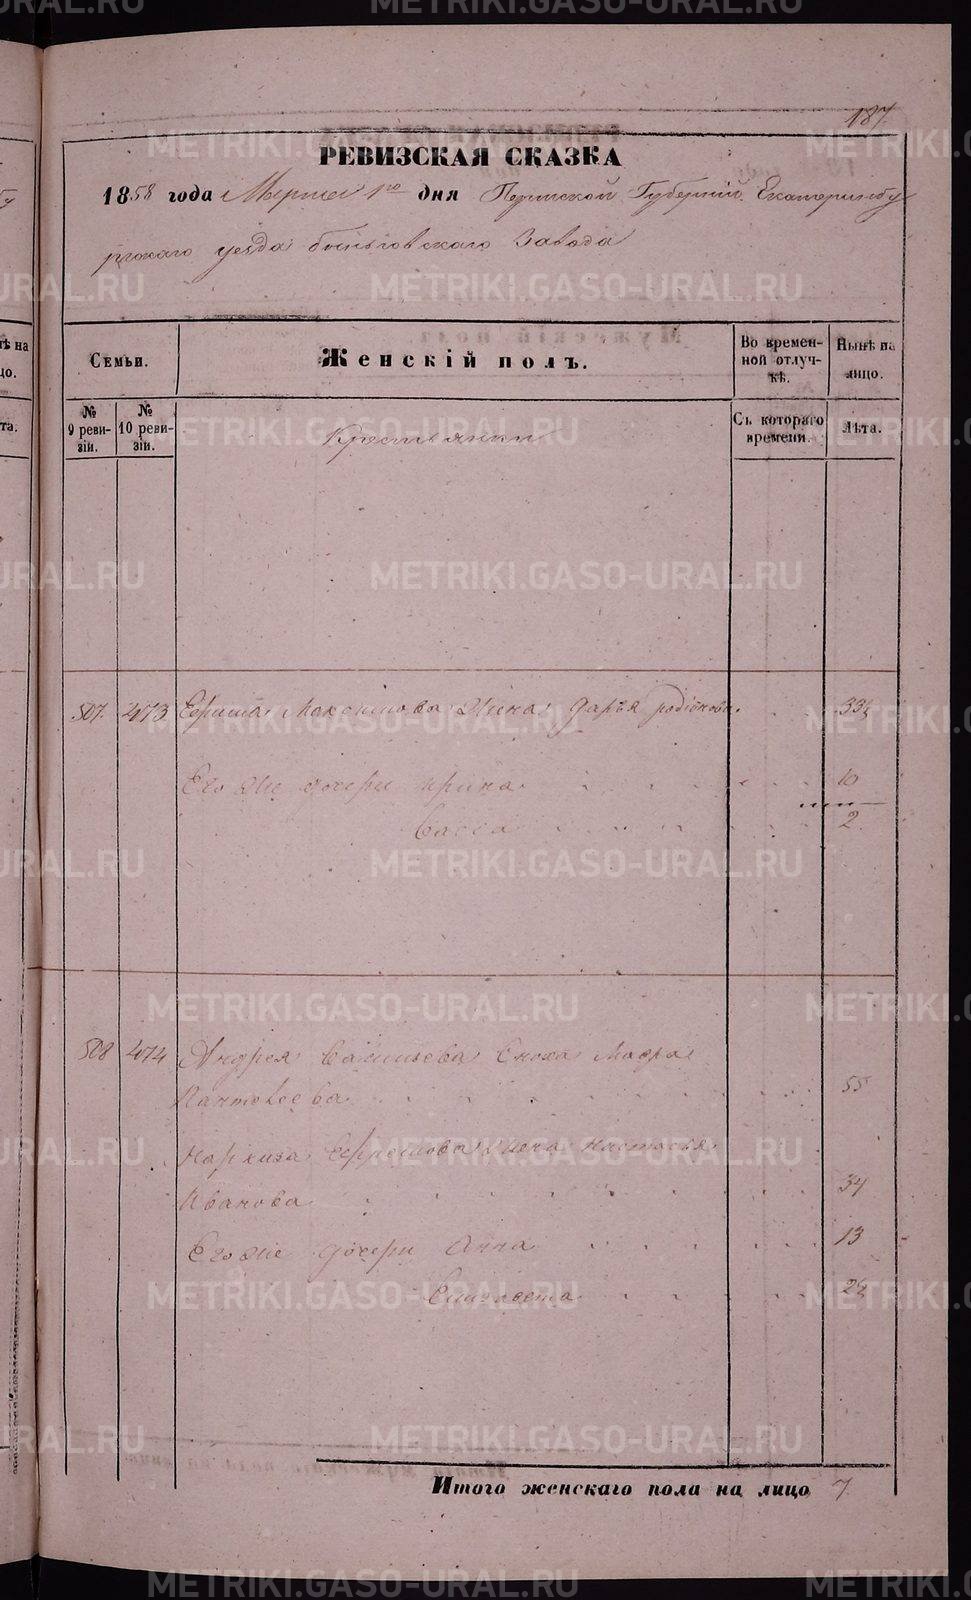 187
РЕВИЗСКАЯ СКАЗКА
1858 года Марта 1го дня Пермской Губернiи Екатеринбу
ргскаго уезда Быньговскаго Завода
Семьи.
Женскiй полъ.
Во времен-
ной отлуч-
кѣ.
Нынѣ на
лицо.
№
9 реви-
зiи.
№
10 реви-
зiи.
Крестьянки
Съ котораго
времени.
Лѣта.
507. 473 Ефима Максимова Жена Дарья родiонова. 33½
Его же дочери Ирина 10
Васса 2
508 474 Андрея Савельева Сноха Мавра
Пантелеева 55
Наркиза Ефремова Жена Настасья
Иванова 34
Его же дочери Анна 13
Елизавета 2½
Итого женскаго пола на лицо 7
METRIKI.GASO-URAL.RU